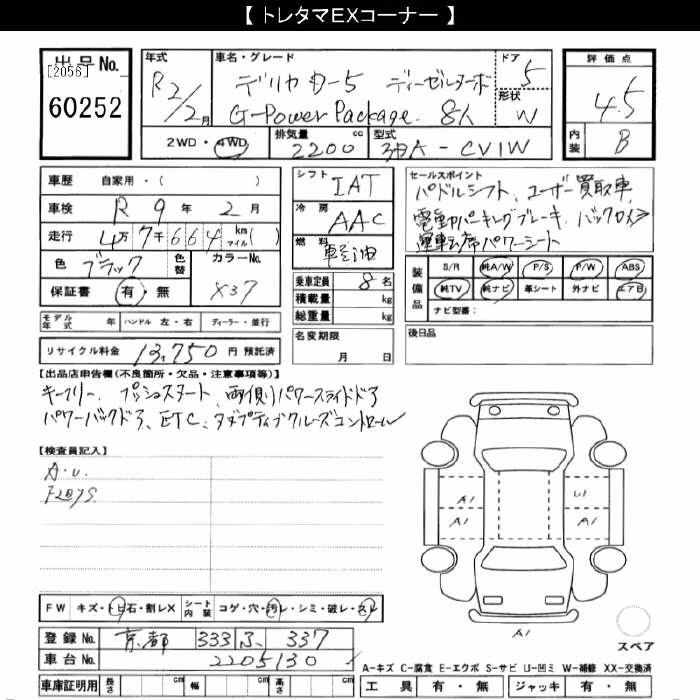 【 トレタマEXコーナー 】
出品No.
[2056]
60252
年式
R2/2月
車名・グレード
デリカ D-5 ディーゼルターボ
G-Power Package 8人
ドア
5
形状
W
評価点
4.5
内装
B
2WD・4WD
排気量
2200 cc
型式
3DA-CV1W
車歴 自家用・( )
車検 R 9年 2月
走行 4万7千664 km マイル( )
色 ブラック
色替
カラーNo.
X37
保証書 有・無
シフト
IAT
冷房
AAC
燃料
軽油
乗車定員 8名
積載量 kg
総重量 kg
セールスポイント
パドルシフト、ユーザー買取車
電動パーキングブレーキ、バックカメラ
運転席パワーシート
装備品
S/R 純A/W P/S P/W ABS
純TV 純ナビ 革シート 外ナビ エアB
ナビ型番:
モデル年式 年 ハンドル 左・右 ディーラー・並行
名変期限
月 日
後日品
リサイクル料金 13,750 円 預託済
【出品店申告欄(不良箇所・欠品・注意事項等)】
キーフリー、プッシュスタート、両側パワースライドドア
パワーバックドア、ETC、アダプティブクルーズコントロール
【検査員記入】
A.U.
A1
U1
A1
A1
A1
スペア
FW キズ・トビ石・割レX
シート内装 コゲ・穴・汚レ・シミ・破レ・スレ
登録No. 京都 333 ふ 337
車台No. 2205130
A-キズ C-腐食 E-エクボ S-サビ U-凹ミ W-補修 XX-交換済
車庫証明用 長さ cm 幅 cm 高さ cm
工具 有・無 ジャッキ 有・無